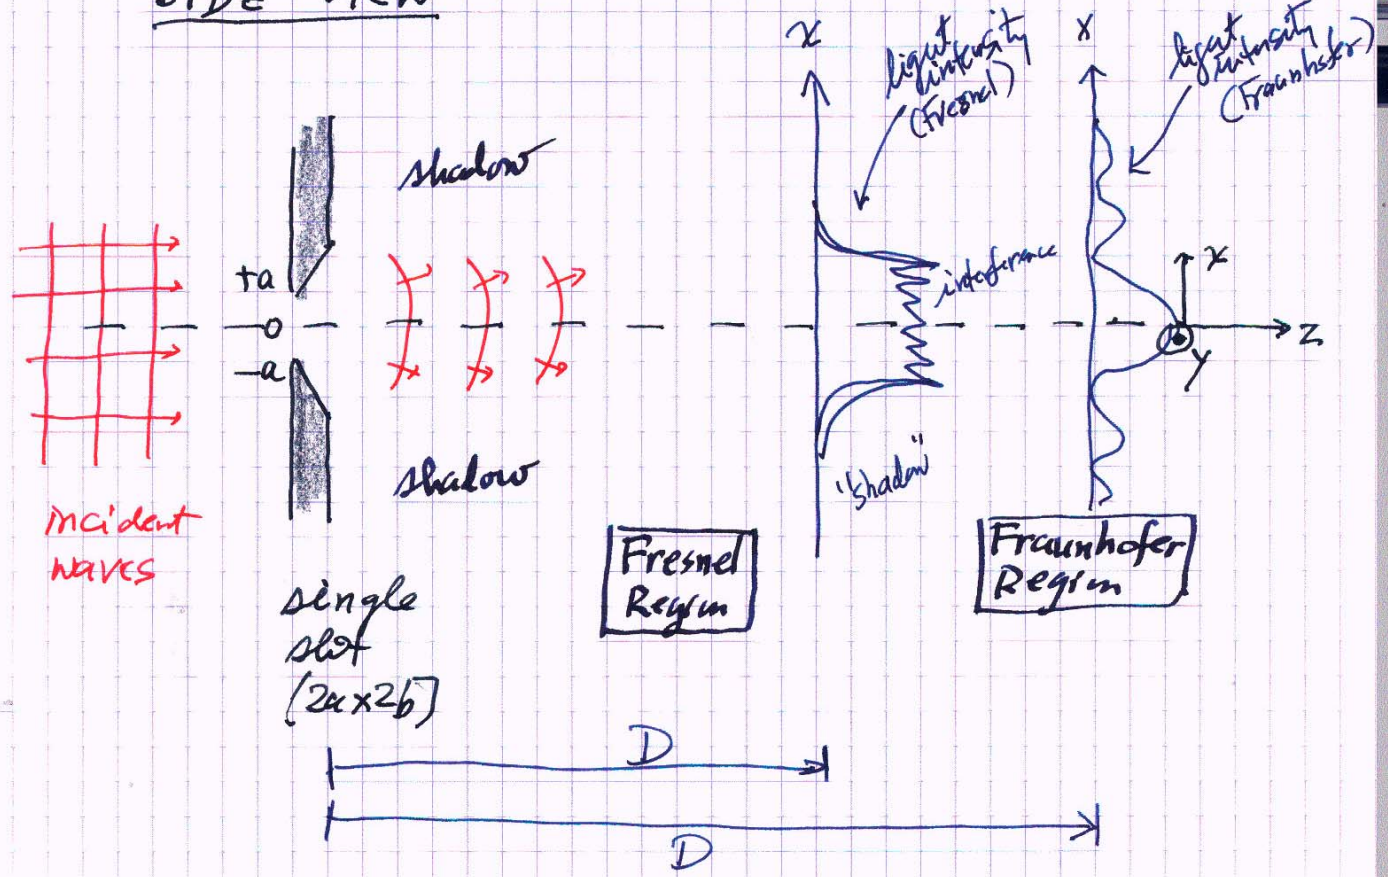 SIDE VIEW
x
light
intensity
(Fresnel)
X
light
intensity
(Fraunhofer)
shadow
+a
0
-a
interference
x
Z
Y
shadow
"shadow"
incident
waves
single
slot
(2a×2b)
Fresnel
Region
Fraunhofer
Region
D
D